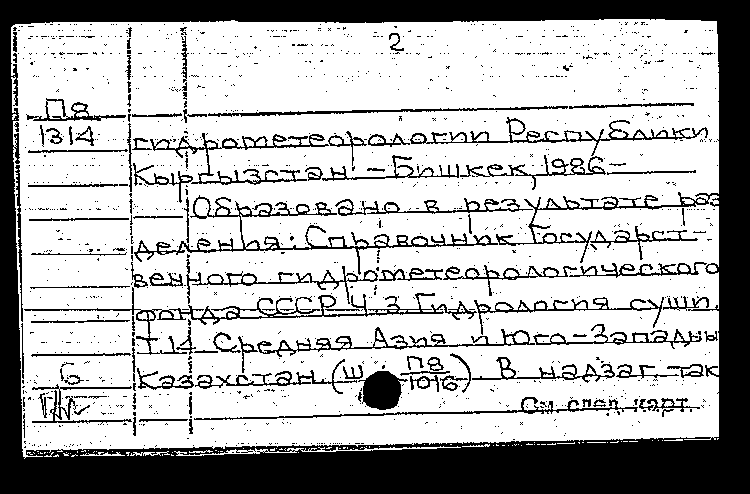 2
П8
1314
гидрометеорологии Республики
Кыргызстан. – Бишкек, 1986–
Образовано в результате раз
деления: Справочник Государст-
венного гидрометеорологического
фонда СССР Ч. 3. Гидрология суши.
Т.14 Средняя Азия и Юго-Западны
Казахстан. (Ш П8/1016). В надзаг. так
6
См. след. карт.